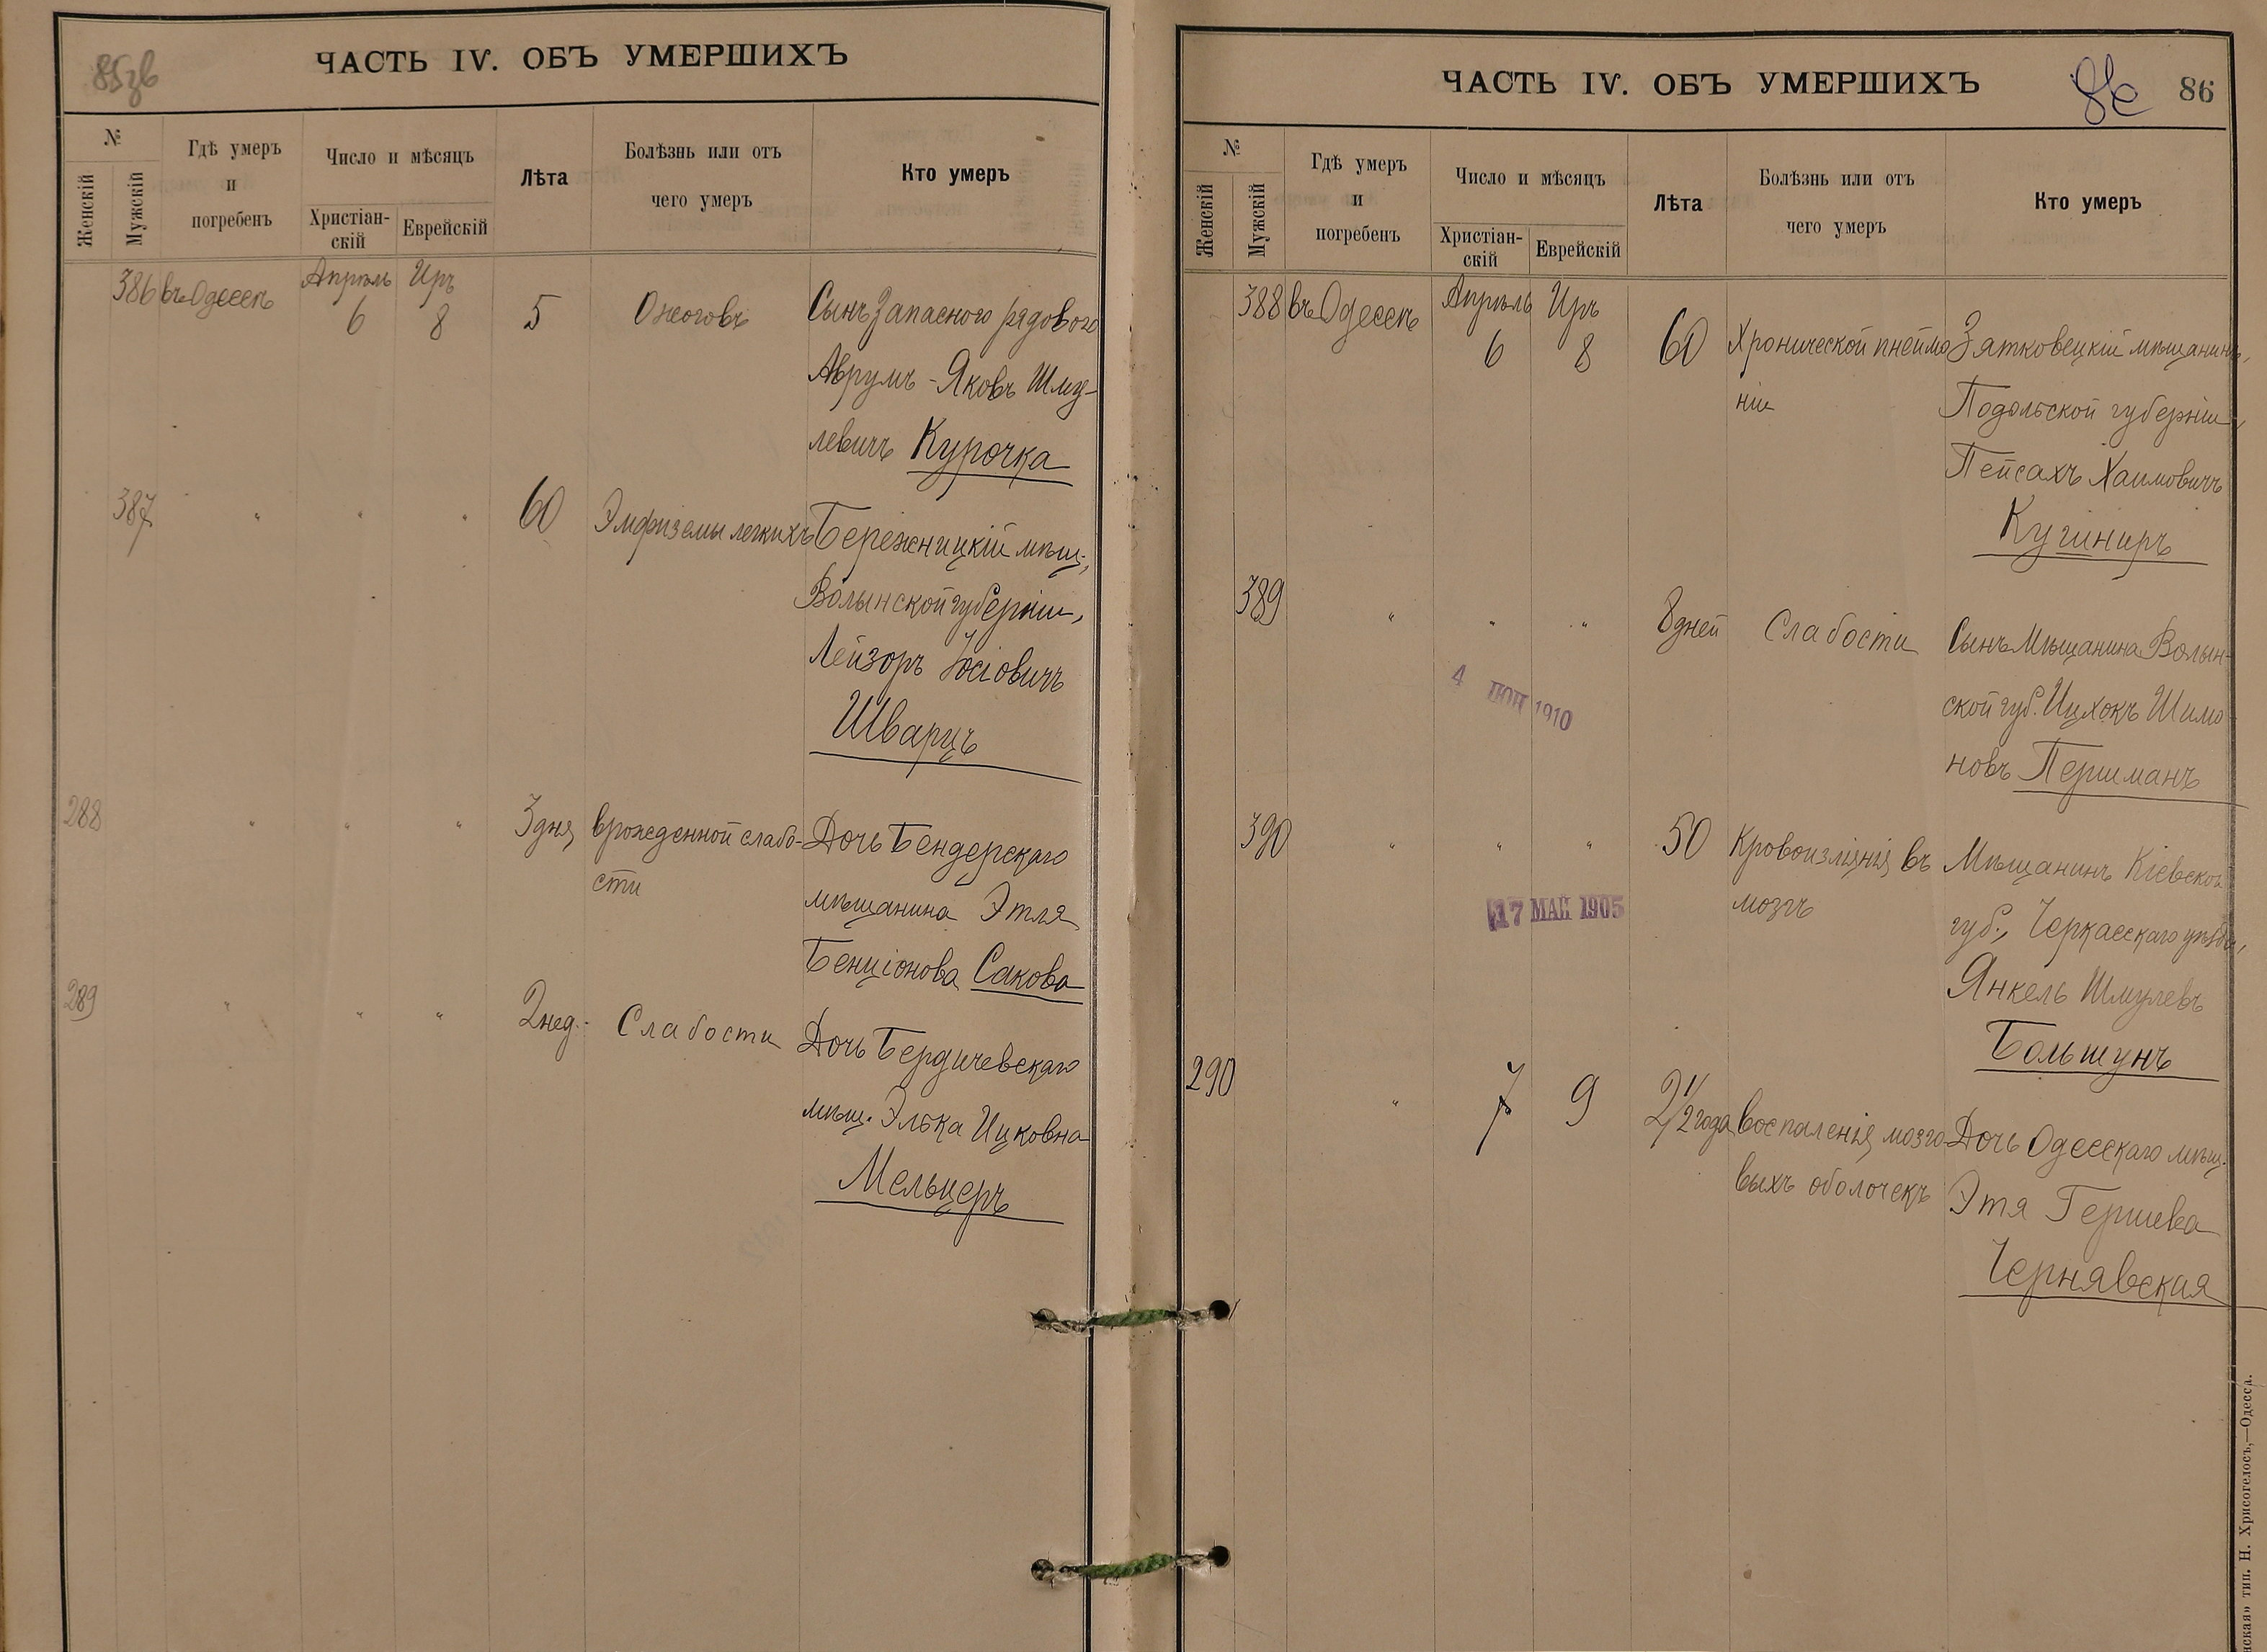 85зв
ЧАСТЬ IV. ОБЪ УМЕРШИХЪ
№
Женскій
Мужскій
Гдѣ умеръ
и
погребенъ
Число и мѣсяцъ
Христіан-
скій
Еврейскій
Лѣта
Болѣзнь или отъ
чего умеръ
Кто умеръ
386 въ Одессѣ Апрѣль 6 Иръ 8 5 Ожоговъ Сынъ Запасного рядового
Аврумъ-Яковъ Шму-
левичъ Курочка
387 " " " 60 Эмфиземы легкихъ Бережницкій мѣщ.,
Волынской губерніи,
Лейзоръ Іосіовичъ
Шварцъ
288 " " " 3 дня врожденной слабо- Дочь Бендерскаго
сти мѣщанина Этля
Бенціонова Сакова
289 " " " 2 нед. Слабости Дочь Бердичевскаго
мѣщ. Элька Ицковна
Мельцеръ
ЧАСТЬ IV. ОБЪ УМЕРШИХЪ
86
№
Женскій
Мужскій
Гдѣ умеръ
и
погребенъ
Число и мѣсяцъ
Христіан-
скій
Еврейскій
Лѣта
Болѣзнь или отъ
чего умеръ
Кто умеръ
388 въ Одессѣ Апрѣль 6 Иръ 8 60 Хронической пнеймо Зятковецкій мѣщанинъ,
ніи Подольской губерніи,
Пейсахъ Хаимовичъ
Кугиниръ
389 " " " 8 дней Слабости Сынъ Мѣщанина Волын-
4 ІЮН 1910
ской губ. Ицхокъ Шимо
новъ Першманъ
390 " " " 50 Кровоизліянія въ Мѣщанинъ Кіевской
мозгъ губ., Черкасскаго уѣзда,
17 МАЙ 1905
Янкель Шмулевъ
Большунъ
290 " 7 9 2 1/2 года воспаленія мозго- Дочь Одесскаго мѣщ.
выхъ оболочекъ Этя Гершева
Чернявская
тип. Н. Хрисогелосъ,—Одесса.